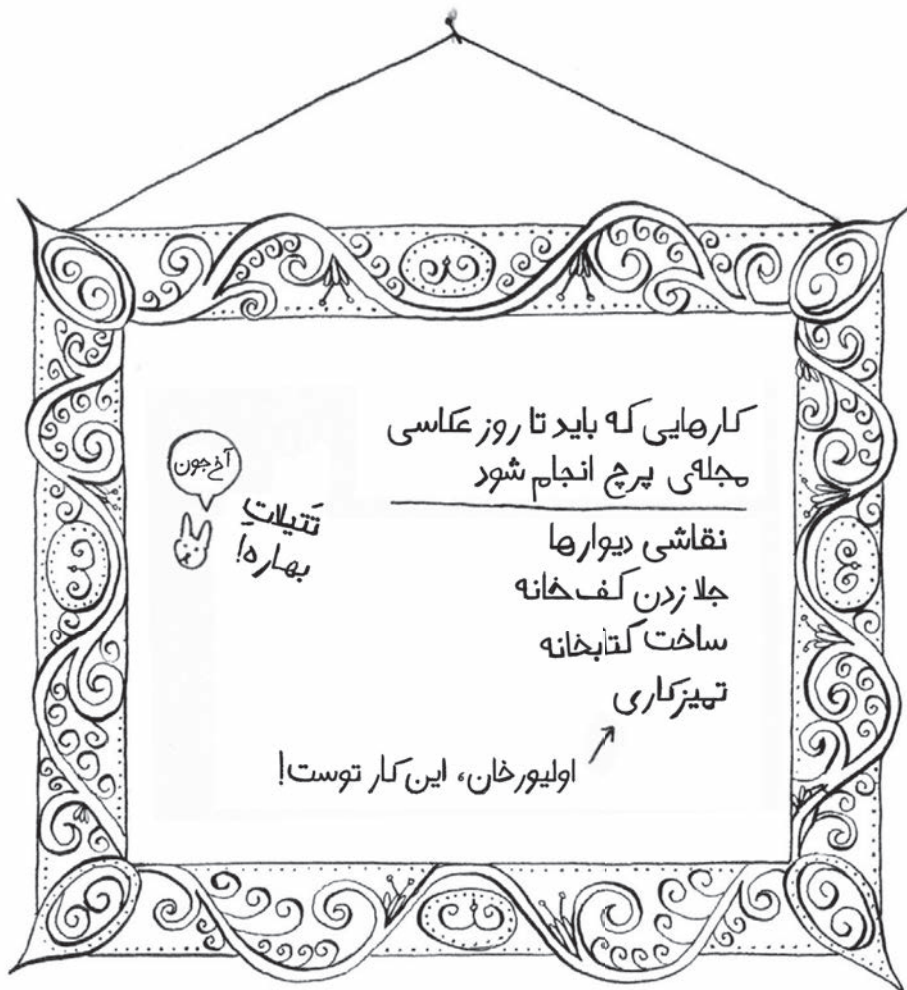 کارهایی که باید تا روز عکاسی
مجله‌ی پرچ انجام شود
نقاشی دیوارها
جلا زدن کف خانه
ساخت کتابخانه
تمیزکاری
اولیورخان، این کار توست!
آخ‌جون
تَتیلاتِ
بهاره!